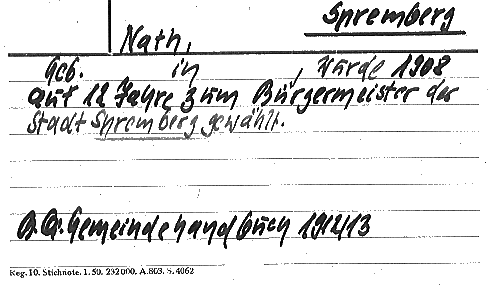 Spremberg
Nath,
Geb. in , wurde 1908
auf 12 Jahre zum Bürgermeister der
Stadt Spremberg gewählt.
B.A. Gemeindehandbuch 1912/13
Reg. 10. Stichnote. 1. 50. 232000. A. 803. S. 4062